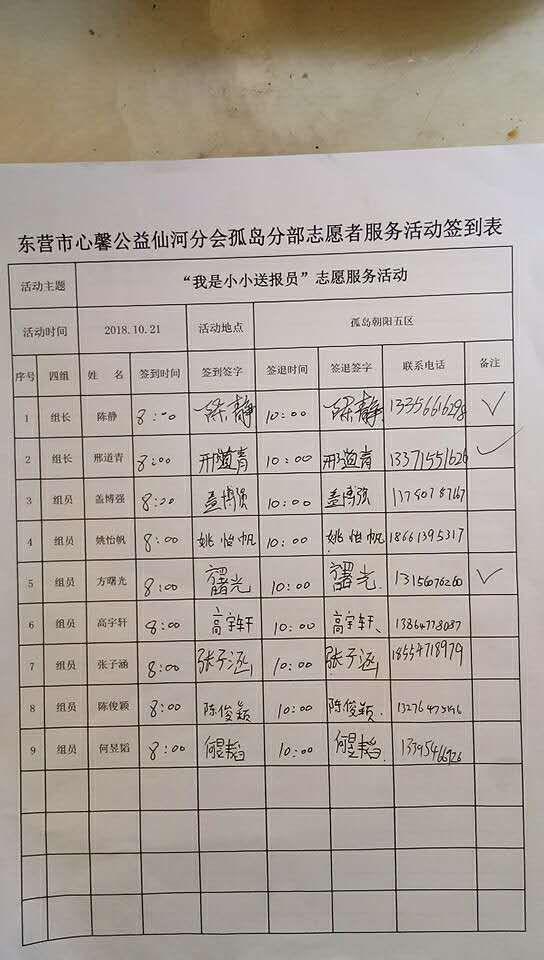 东营市心馨公益仙河分会孤岛分部志愿者服务活动签到表
活动主题 “我是小小送报员”志愿服务活动
活动时间 2018.10.21 活动地点 孤岛朝阳五区
序号 四组 姓 名 签到时间 签到签字 签退时间 签退签字 联系电话 备注
1 组长 陈静 8:00 陈静 10:00 陈静 13356616298 ✓
2 组长 邢道青 8:00 邢道青 10:00 邢道青 13371551626 ✓
3 组员 盖博强 8:00 盖博强 10:00 盖博强
4 组员 姚怡帆 8:00 姚怡帆 10:00 姚怡帆 18661395317
5 组员 方曙光 8:00 方曙光 10:00 方曙光 13156076260 ✓
6 组员 高宇轩 8:00 高宇轩 10:00 高宇轩 13864778087
7 组员 张子涵 8:00 张子涵 10:00 张子涵 18554718979
8 组员 陈俊颖 8:00 陈俊颖 10:00 陈俊颖
9 组员 何昱韬 8:00 何昱韬 10:00 何昱韬